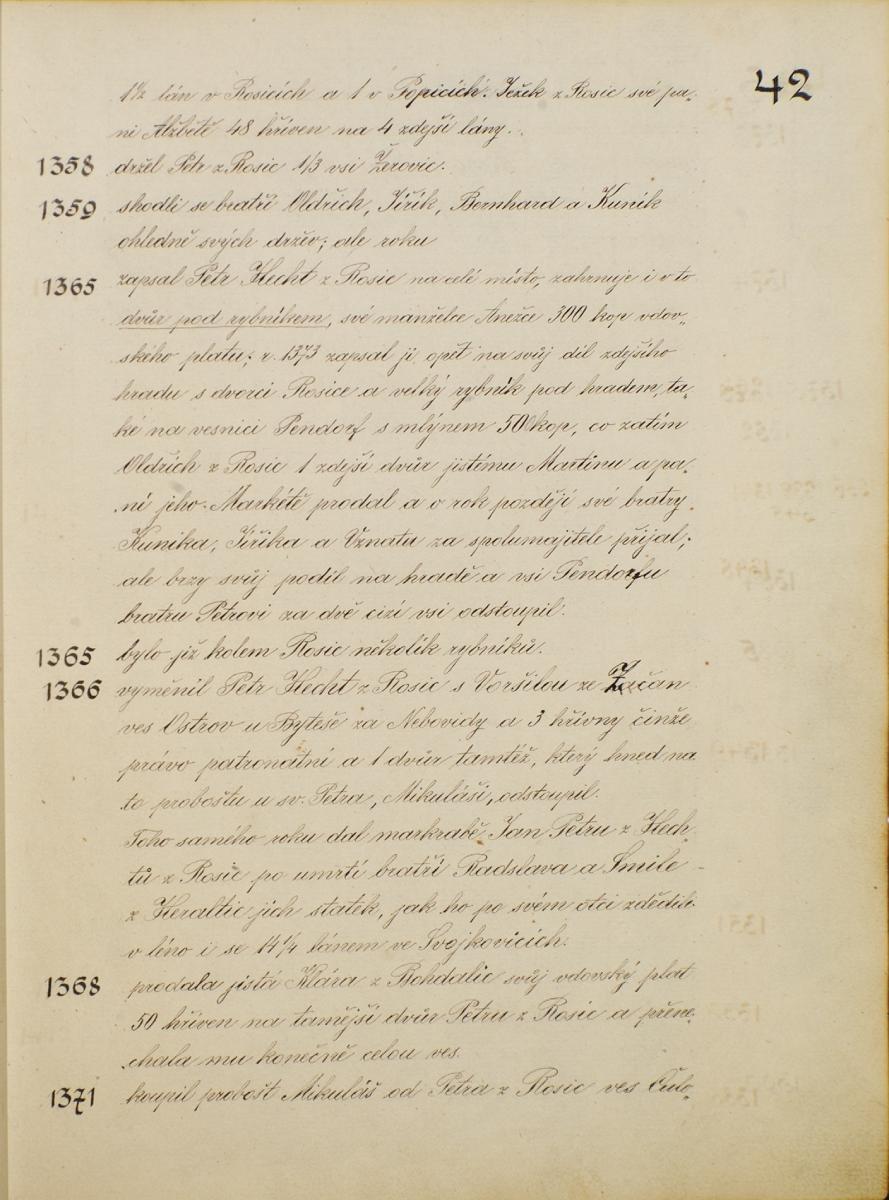 42
1½ lán v Rosicích a 1 v Popicích. Ježek z Rosic své pa-
ní Alžbětě 48 hřiven na 4 zdejší lány.
1358 držel Petr z Rosic 1/3 vsi Žerovic.
1359 shodli se bratří Oldřich, Jiřík, Bernhard a Kuník
ohledně svých držev; ale roku
1365 zapsal Petr Hecht z Rosic na celé místo, zahrnuje i v to
dvůr pod rybníkem, své manželce Anežce 300 kop vdov-
ského platu; r. 1373 zapsal jí opět na svůj díl zdejšího
hradu s dvorci Rosice a velký rybník pod hradem, ta-
ké na vesnici Pendorf s mlýnem 500 kop, co zatím
Oldřich z Rosic 1 zdejší dvůr jistému Martinu a pa-
ní jeho Markétě prodal a o rok později své bratry
Kunika, Jiříka a Vznatu za spolumajitele přijal;
ale brzy svůj podíl na hradě a vsi Pendorfu
bratru Petrovi za dvě cizí vsi odstoupil.
1365 bylo již kolem Rosic několik rybníků.
1366 vyměnil Petr Hecht z Rosic s Voršilou ze Začan
ves Ostrov u Byteše za Nebovidy a 3 hřivny činže
právo patronátní a 1 dvůr tamtéž, který hned na
to proboštu u sv. Petra, Mikuláši, odstoupil.
Toho samého roku dal markrabě Jan Petru z Hech-
tů z Rosic po umrtí bratří Radslava a Smile
z Heraltic jich statek, jak ho po svém otci zdědili
v léno i se 14¼ lánem ve Svojkovicích.
1368 prodala jistá Klára z Bohdalic svůj vdovský plat
50 hřiven na tamější dvůr Petru z Rosic a přene-
chala mu konečně celou ves.
1371 koupil probošt Mikuláš od Petra z Rosic ves